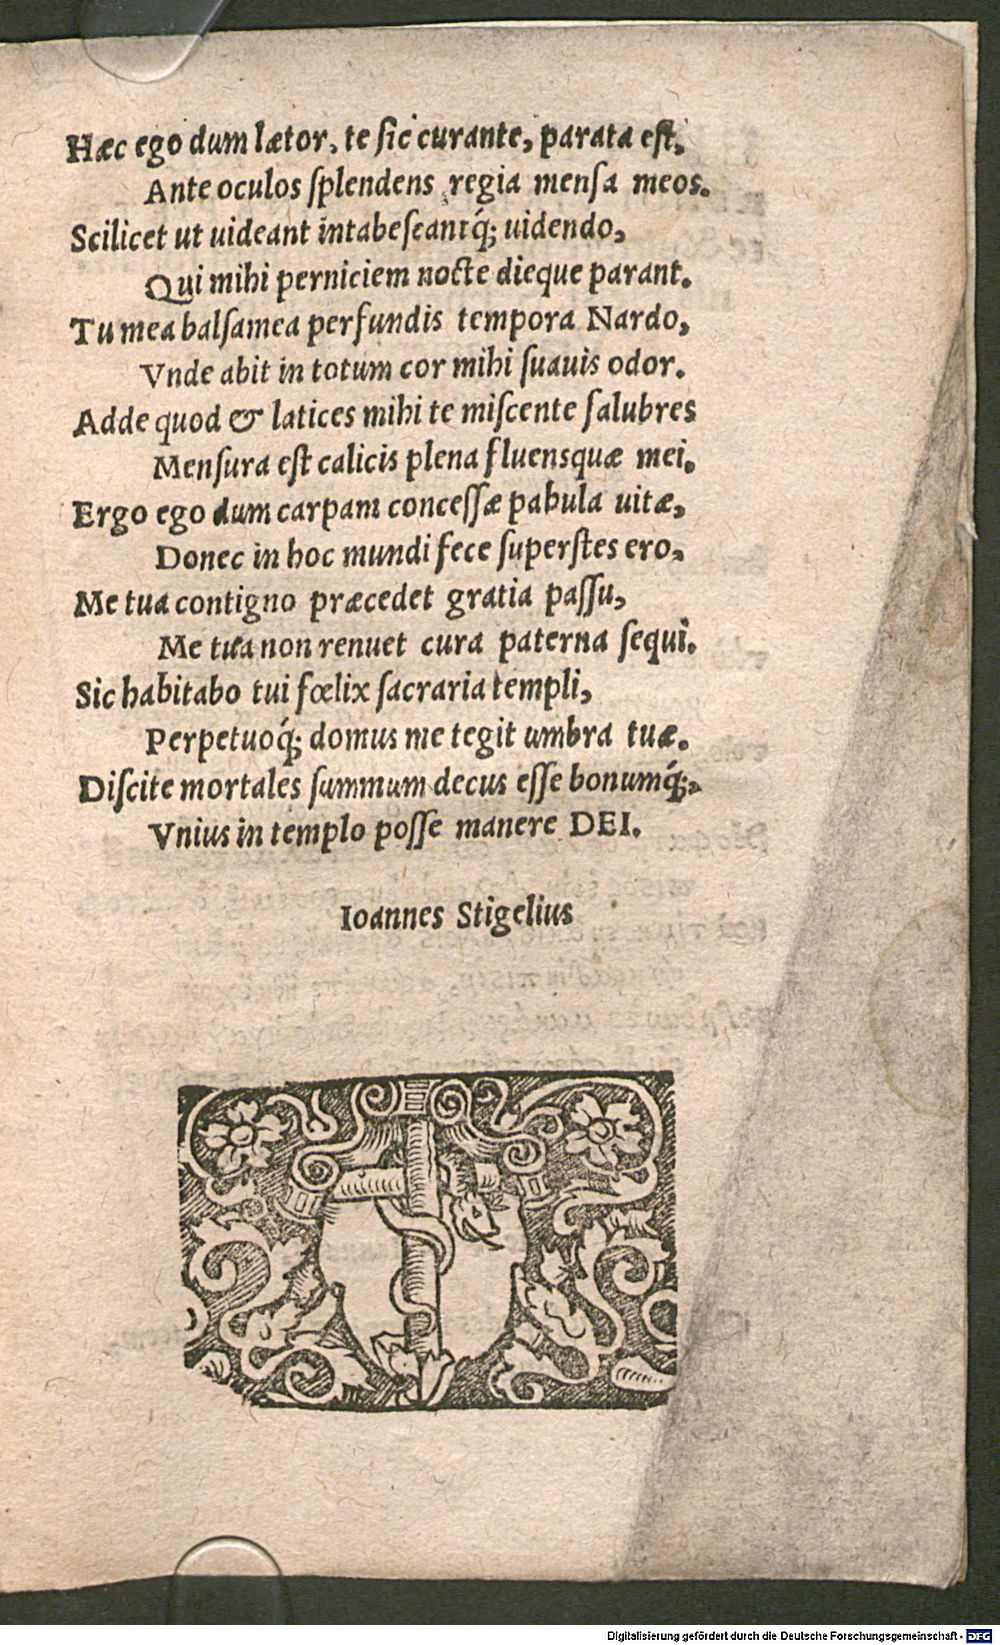 Hæc ego dum lætor, te sic curante, parata est,
Ante oculos splendens regia mensa meos.
Scilicet ut uideant intabescantq́; uidendo,
Qui mihi perniciem nocte dieque parant.
Tu mea balsamea perfundis tempora Nardo,
Vnde abit in totum cor mihi suauis odor.
Adde quod & latices mihi te miscente salubres
Mensura est calicis plena fluensquæ mei.
Ergo ego dum carpam concessæ pabula uitæ,
Donec in hoc mundi fece superstes ero,
Me tua contigno præcedet gratia passu,
Me tua non renuet cura paterna sequi.
Sic habitabo tui fœlix sacraria templi,
Perpetuoq́; domus me tegit umbra tuæ.
Discite mortales summum decus esse bonumq́;,
Vnius in templo posse manere DEI.
Ioannes Stigelius
Digitalisierung gefördert durch die Deutsche Forschungsgemeinschaft - DFG